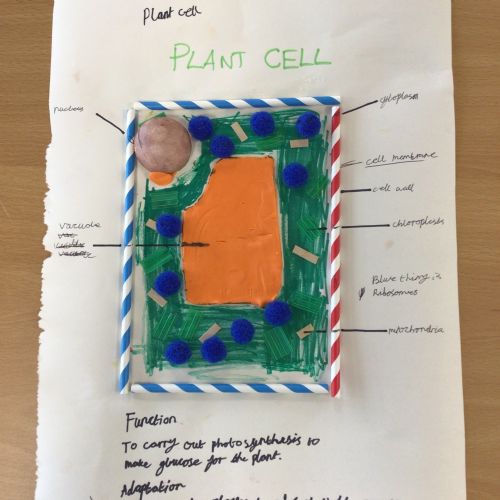 Plant cell
PLANT CELL
nucleus
cytoplasm
cell membrane
cell wall
vacuole
chloroplasts
Blue thing is
Ribosomes
mitochondria
Function
To carry out photosynthesis to
make glucose for the plant.
Adaptation